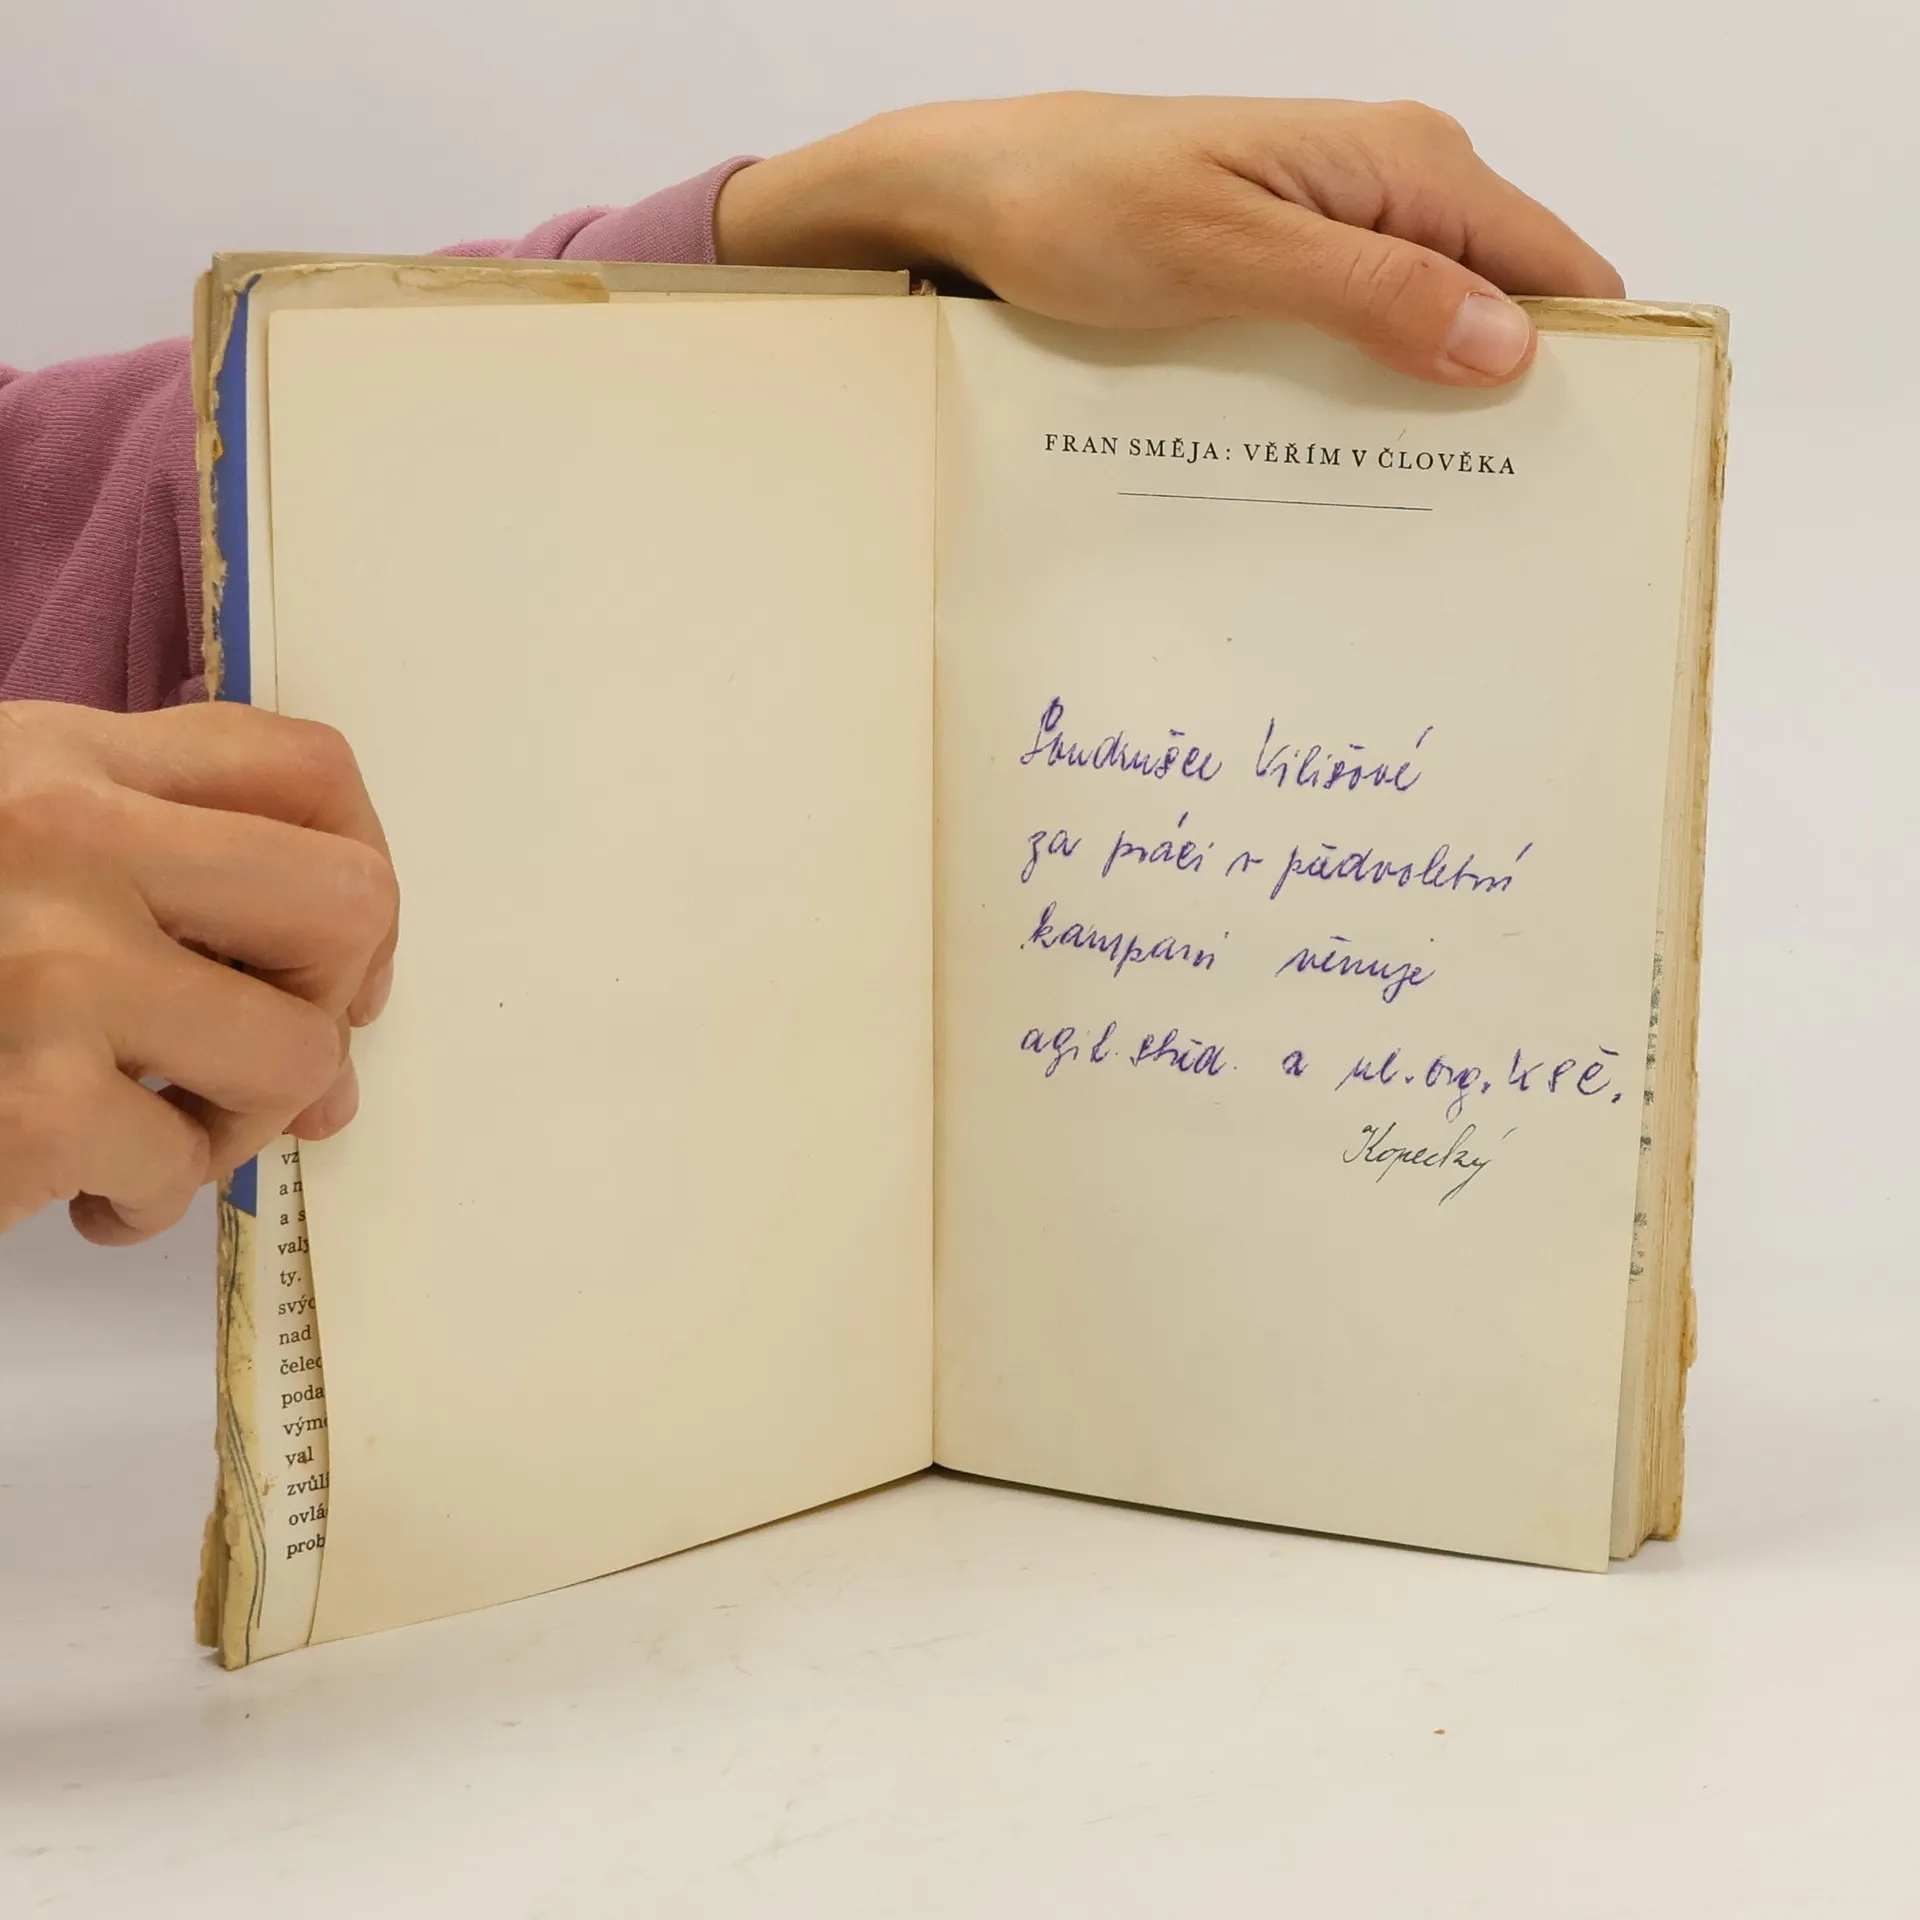 FRAN SMĚJA: VĚŘÍM V ČLOVĚKA
Soudružce Vilišové
za práci v předvolební
kampani věnuje
agit. střed. a ul. org. KSČ.
Kopecký
vz
an
a s
valy
ty.
svýc
nad
čelec
poda
výmě
val
zvůli
ovlá
prob